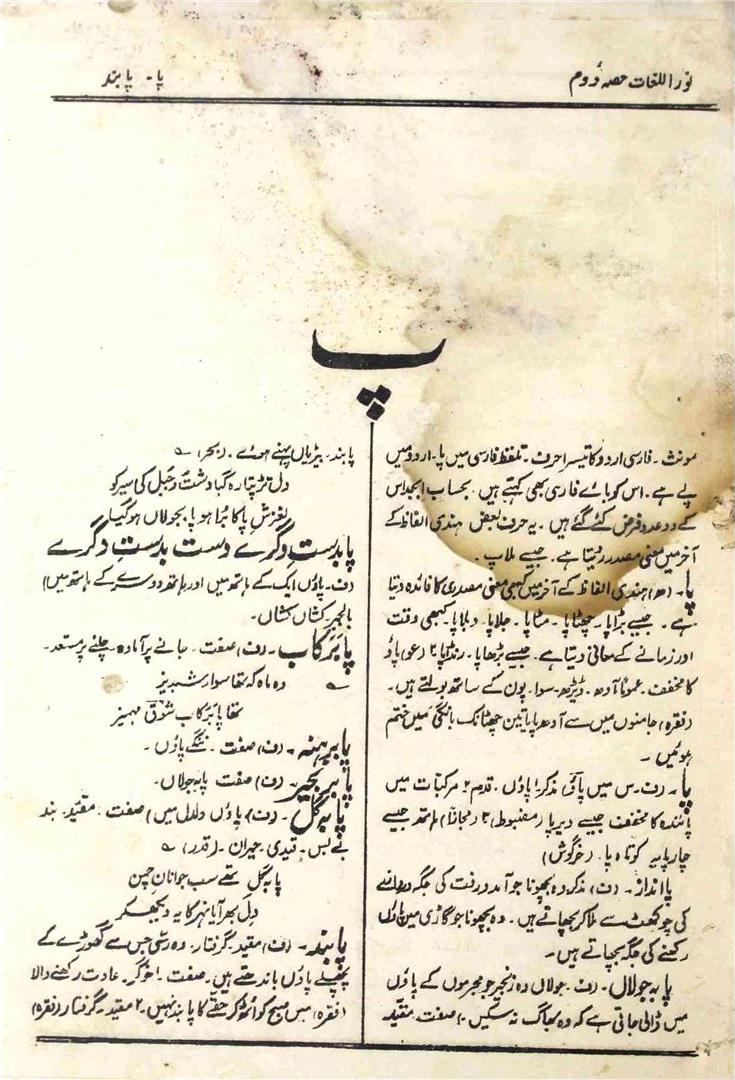 نور اللغات حصہ دوم
پا - پابند
پ
مونث - فارسی اردو کا تیسرا حرف - تلفظ فارسی میں پا - اردو میں
پے ہے - اس کو بائے فارسی بھی کہتے ہیں - بحساب ابجد اس
کے دو عدد فرض کئے گئے ہیں - یہ حرف بعض ہندی الفاظ کے
آخر میں معنی مصدر دیتا ہے - جیسے ملاپ -
پا - (ھ) ہندی الفاظ کے آخر میں کبھی معنی مصدری کا فائدہ دیتا
ہے - جیسے بڑاپا - چھٹاپا - مٹاپا - جلاپا - دبلاپا - کبھی وقت
اور زمانے کے معانی دیتا ہے - جیسے بڑھاپا - رنڈاپا ۲ (عو) پاؤ
کا مخفف - عموماً آدھ - ڈیڑھ - سوا - پون کے ساتھ بولتے ہیں -
(فقرہ) جامنوں میں سے آدھ پا یا تین چھٹانک بانگی میں ختم
ہوئیں -
پا - (ف - س میں پاؤ) مذکر ۱ پاؤں - قدم ۲ مرکبات میں
پائندہ کا مخفف جیسے دیرپا (مضبوط) ۳ (مجازاً) ہاتھ جیسے
چارپایہ کوتاہ پا - (خرگوش)
پا انداز - (ف) مذکر وہ بچھونا جو آمد و رفت کی جگہ دروازے
کی چوکھٹ سے ملا کر بچھاتے ہیں - وہ بچھونا جو گاڑی میں پاؤں
رکھنے کی جگہ بچھاتے ہیں -
پا بہ جولاں - (ف - جولاں وہ زنجیر جو مجرموں کے پاؤں
میں ڈالی جاتی ہے کہ وہ بھاگ نہ سکیں -) صفت - مقید
پابند - بیڑیاں پہنے ہوئے - (بحر) ؎
دل تڑپتا رہ گیا دشت و جبل کی سیر کو
لغزشِ پا کا برا ہو پابجولاں ہو گیا
پا بدستِ دگرے دست بدستِ دگرے
(ف - پاؤں ایک کے ہاتھ میں اور ہاتھ دوسرے کے ہاتھ میں)
بالجبر کشاں کشاں -
پا برکاب - (ف) صفت - جانے پر آمادہ - چلنے پر مستعد -
؎ وہ ماہ کہ تھا سوار شبدیز
تھا پا برکاب شوق مہمیز
پا برہنہ - (ف) صفت - ننگے پاؤں -
پا بزنجیر - (ف) صفت پابہ جولاں -
پا بہ گل - (ف) پاؤں دلدل میں) صفت - مقید - بند
بے بس - قیدی - حیران - (قدر) ؎
پا بہ گل تھے سب جوانانِ چمن
دل بھر آیا نہر کا یہ دیکھ کر
پابند - (ف) مقید - گرفتار - وہ رسی جس سے گھوڑے کے
پچھلے پاؤں باندھتے ہیں - صفت - ۱ خوگر - عادت رکھنے والا
(فقرہ) میں صبح کو اٹھ کر حقے کا پابند نہیں - ۲ مقید - گرفتار (فقرہ)